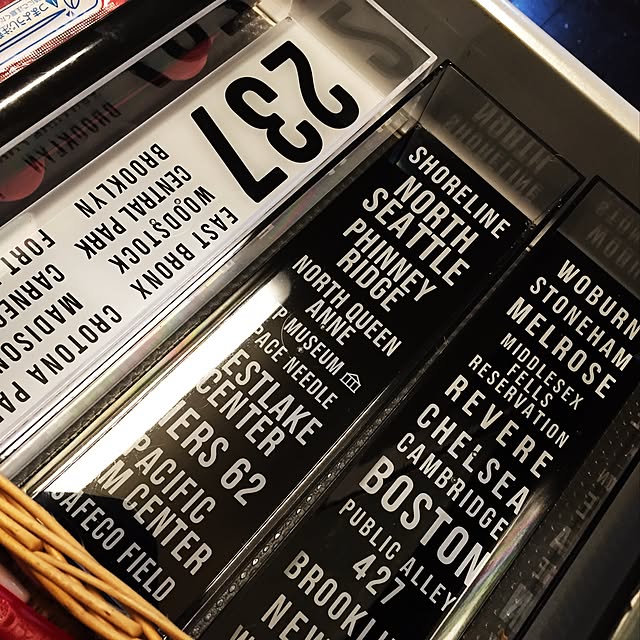 237
EAST BRONX
WOODSTOCK
CENTRAL PARK
BROOKLYN
CROTONA PA
MADISON
CARNEG
FORT
SHORELINE
NORTH
SEATTLE
PHINNEY
RIDGE
NORTH QUEEN
ANNE
P MUSEUM
PACE NEEDLE
ESTLAKE
CENTER
IERS 62
PACIFIC
M CENTER
AFECO FIELD
WOBURN
STONEHAM
MELROSE
MIDDLESEX
FELLS
RESERVATION
REVERE
CHELSEA
CAMBRIDGE
BOSTON
PUBLIC ALLEY
427
BROOKLI
NEW